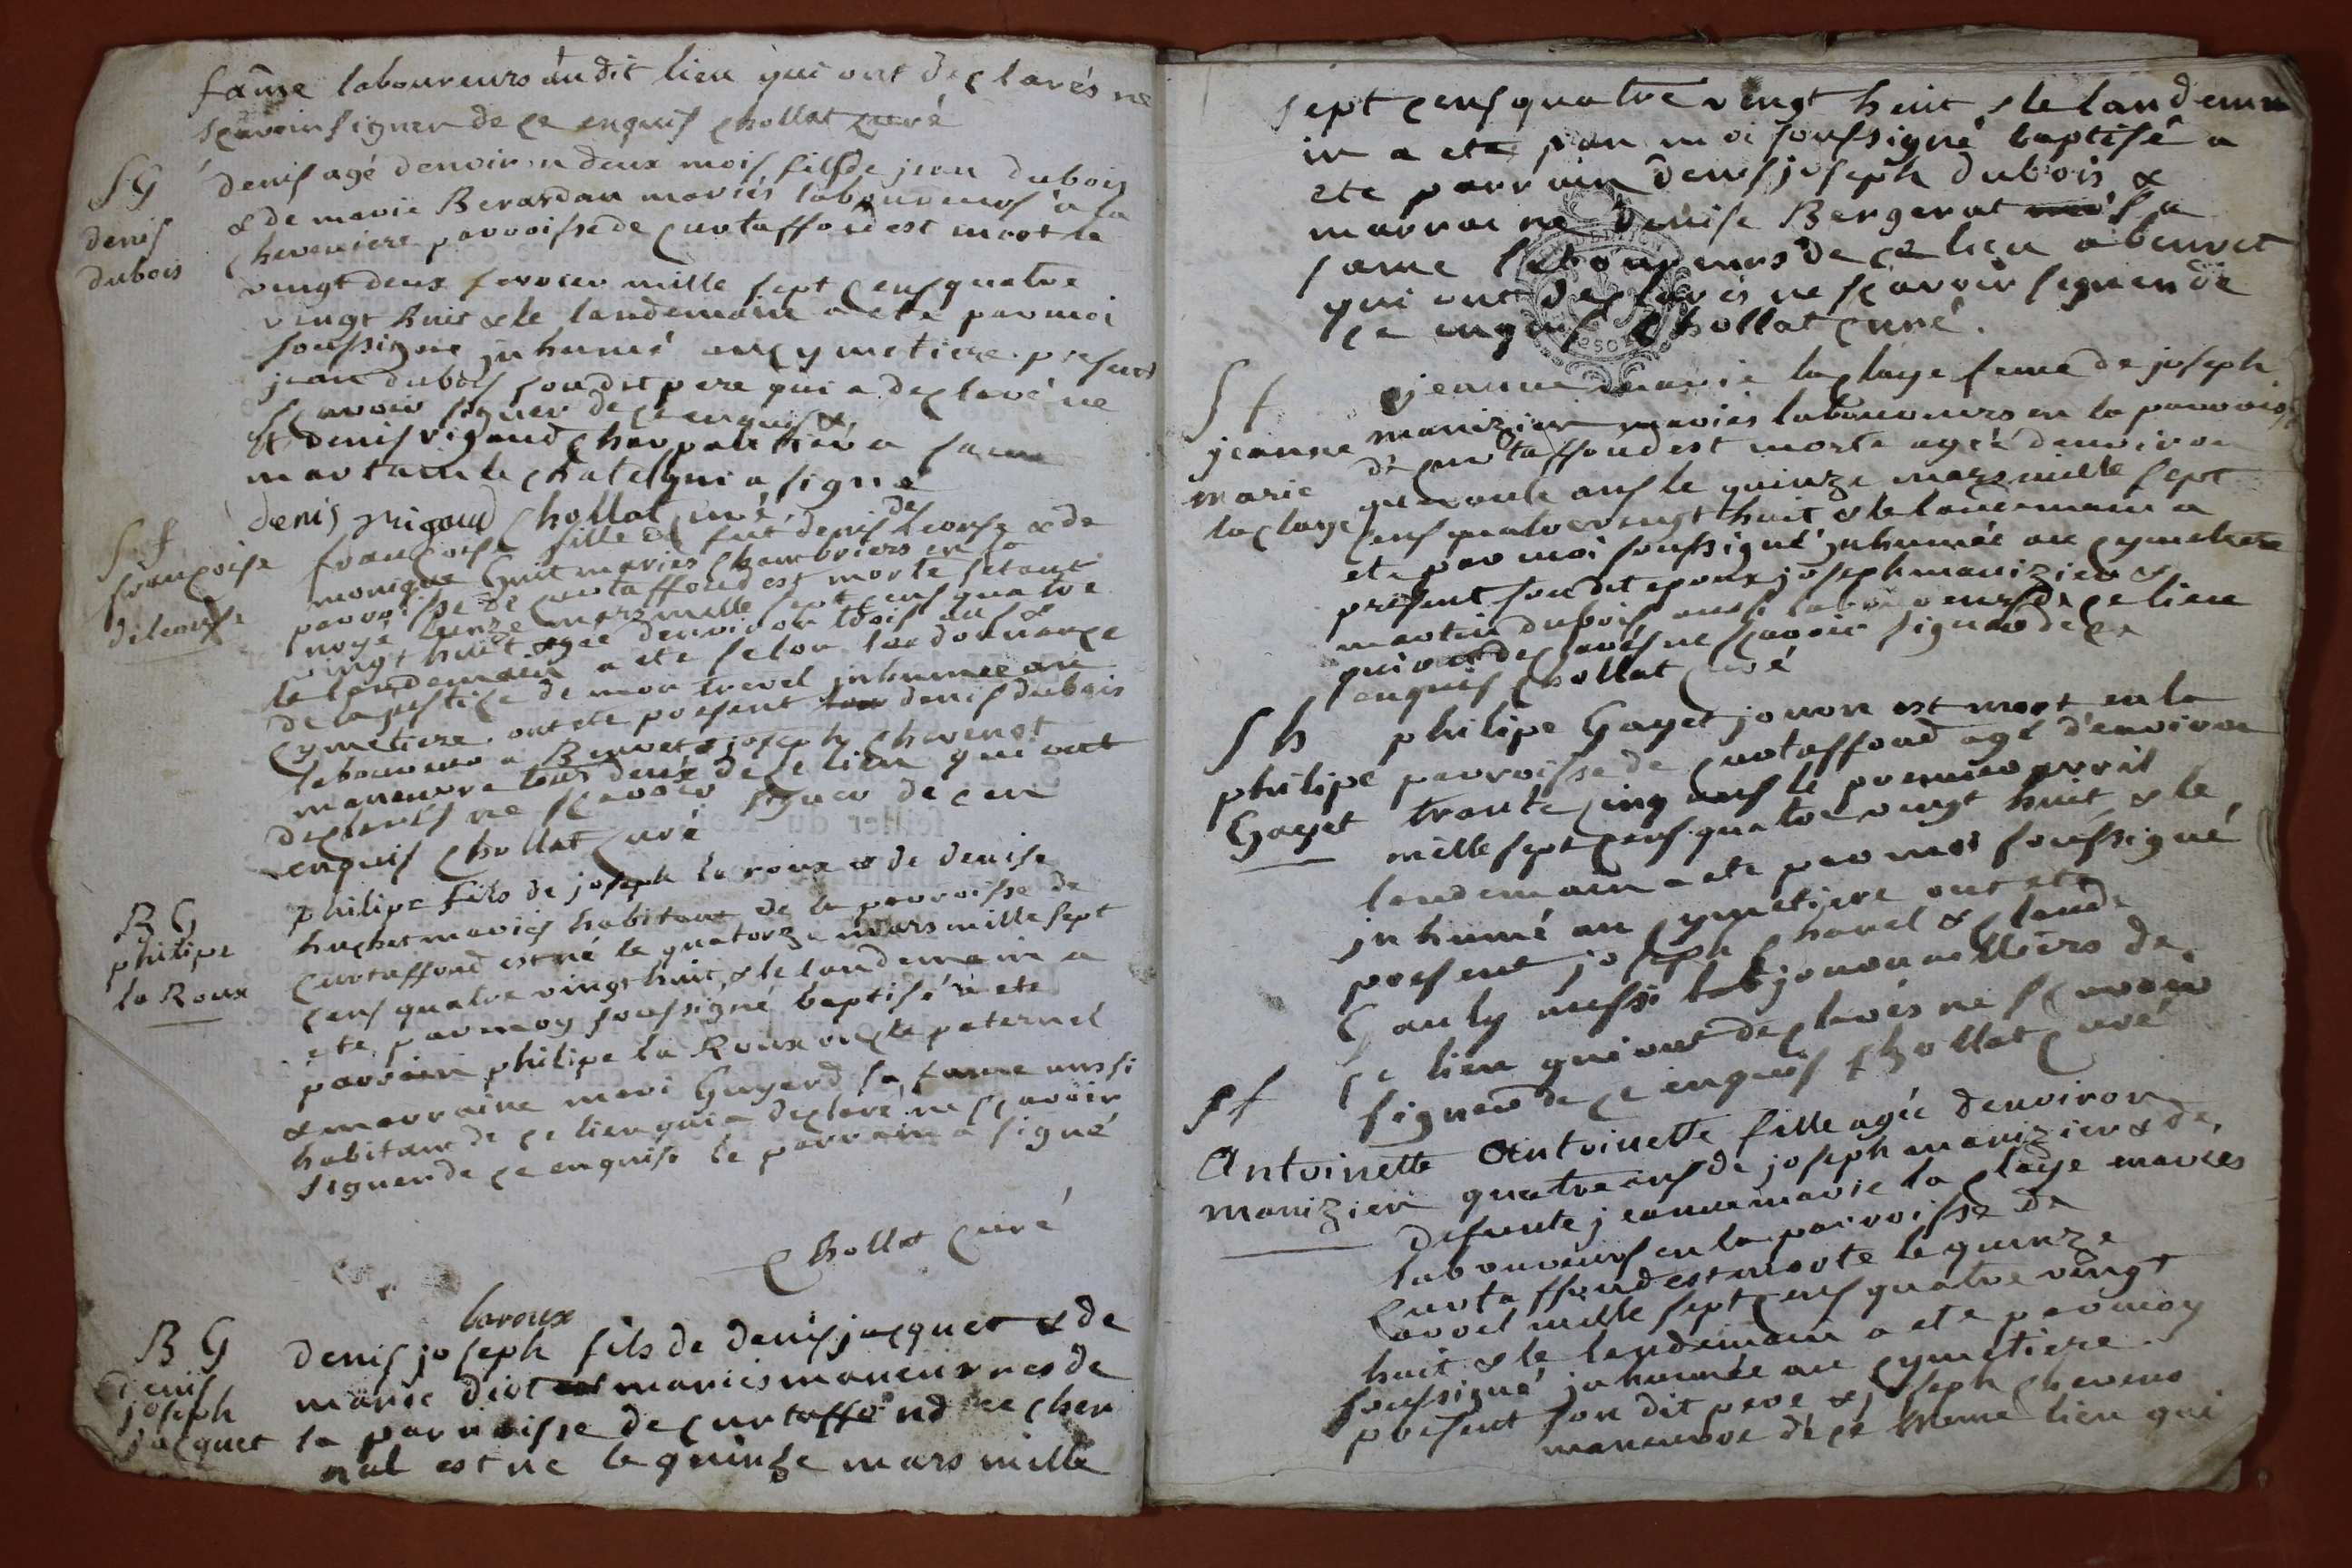 fame laboureurs audit lieu qui ont declarés ne
scavoir signer de ce enquis chollat curé
SG
denis
dubois
denis agé denviron deux mois fils de jean dubois
& de marie Berardan mariés laboureurs a la
cheveniere parroisse de curtaffond est mort le
vingt deux fevrier mille sept cens quatre
vingt huit & le landemain a ete par moi
soussigné inhumé au cymetiere. presents
jean dubois son dit pere qui a declaré ne
scavoir signer de ce enquis &
& denis rigaud charpentier a saint
martain le chatel qui a signé
denis rigaud chollat curé
Sf
françoise
deleause
françoise fille de fut denis deleause & de
monique Guit mariés chambriers en la
parroisse de curtaffond est morte setant
noyé le onze mars mille sept cens quatre
vingt huit agée denviron trois ans &
le landemain a ete selon lordonnance
de la justice de mon trevel inhumée au
cymetiere. ont ete present denis dubois
laboureur a Beuvet & joseph chevenot
maneuvre tous deux de ce lieu qui ont
declarés ne scavoir signer de ceu
enquis chollat curé
BG
philipe
la Roux
philipe fils de joseph la roux & de denise
huchet mariés habitant de la parroisse de
curtaffond est né le quatorze mars mille sept
cens quatre vingt huit, & le landemain a
ete par moy soussigné baptisé a ete
parrain philipe la Roux oncle paternel
& marraine mari Guyard sa fame aussi
habitant de ce lieu qui a declaré ne scavoir
signer de ce enquise le parrain a signé
chollat curé
laroux
BG
denis
joseph
jacquet
denis joseph fils de denis jacquet & de
marie diot mariés maneuvres de
la parroisse de curtaffond ne cher
nal est ne le quinze mars mille
sept cens quatre vingt huit & le landema
in a ete par moi soussigné baptisé a
ete parrain denis joseph dubois &
marraine denise Bergerat sa
fame laboureurs de ce lieu a beuvet
qui ont declarés ne scavoir signer de
ce enquis chollat curé.
Sf
jeanne
marie
laclaye
jeanne marie laclaye feme de joseph
manizier mariés laboureurs en la parroisse
de curtaffond est morte agée denviron
quarante ans le quinze mars mille sept
cens quatre vingt huit & le landemain a
ete par moi soussigné inhumée au cymetiere
present son dit epoux joseph manizier &
martin dubois aussi laboureurs de ce lieu
qui ont declarés ne scavoir signer de ce
enquis chollat curé
Sh
philipe
Gayet
philipe Gayet jouon est mort en la
parroisse de curtaffond agé d'environ
trante cinq ans le premier avril
mille sept cens quatre vingt huit & le
landemain a ete par moi soussigné
inhumé au cymetiere ont ete
present joseph chanel & claude
Gauly aussi journailliers de
ce lieu qui ont declarés ne scavoir
signer de ce enquis chollat curé
Sf
Antoinette
manizier
Antoinette fille agée denviron
quatre ans de joseph manizier & de
defunte jeanne marie la claye mariés
laboureurs en la parroisse de
curtaffond est morte le quinze
avril mille sept cens quatre vingt
huit & le landemain a ete par moy
soussigné inhumée au cymetiere
present son dit pere & joseph cheveno
maneuvre de ce meme lieu qui